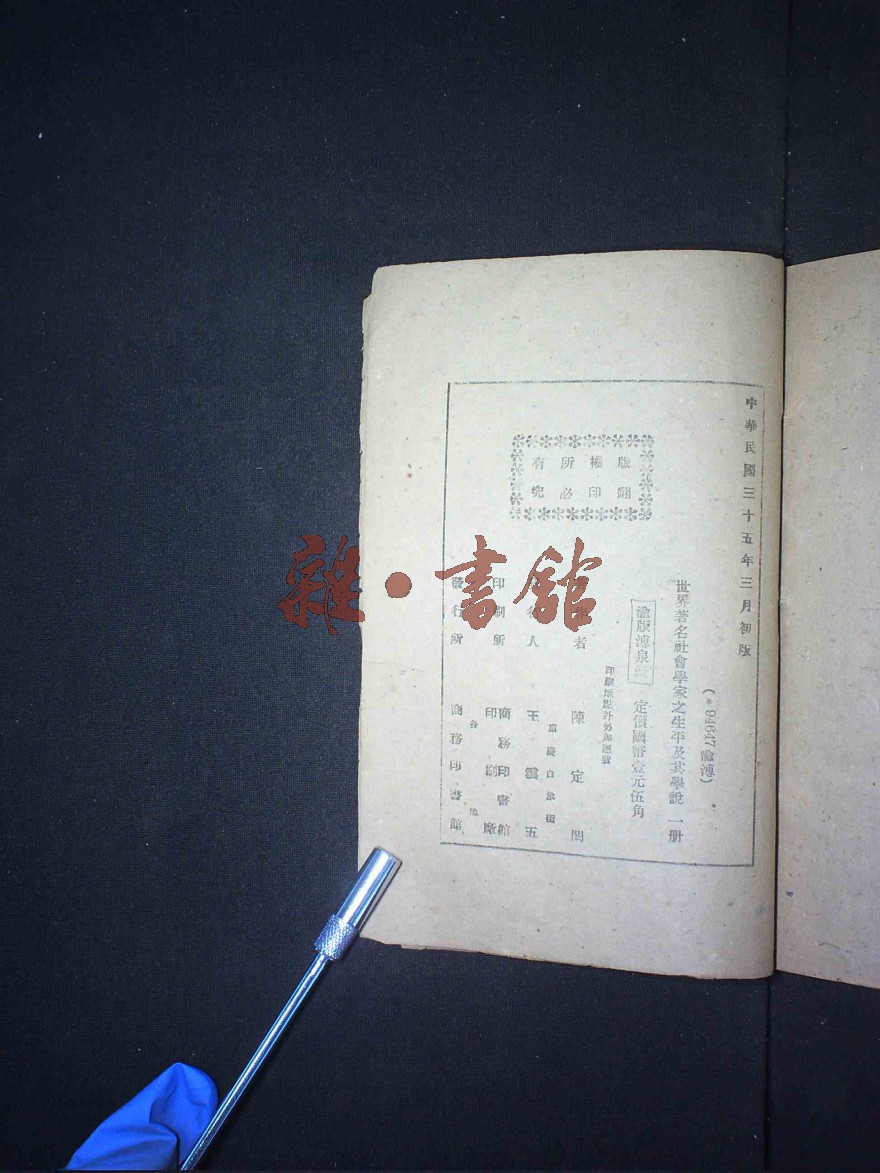 中華民國三十五年三月初版
(*94647渝溥)
世界著名社會學家之生平及其學說 一册
渝版溥泉
定價國幣壹元伍角
印刷地點外另加運費
版權所有
翻印必究
者 陳定閎
人 王雲五
印刷所 商務印書館印刷廠
發行所 商務印書館
各地
雜·書館